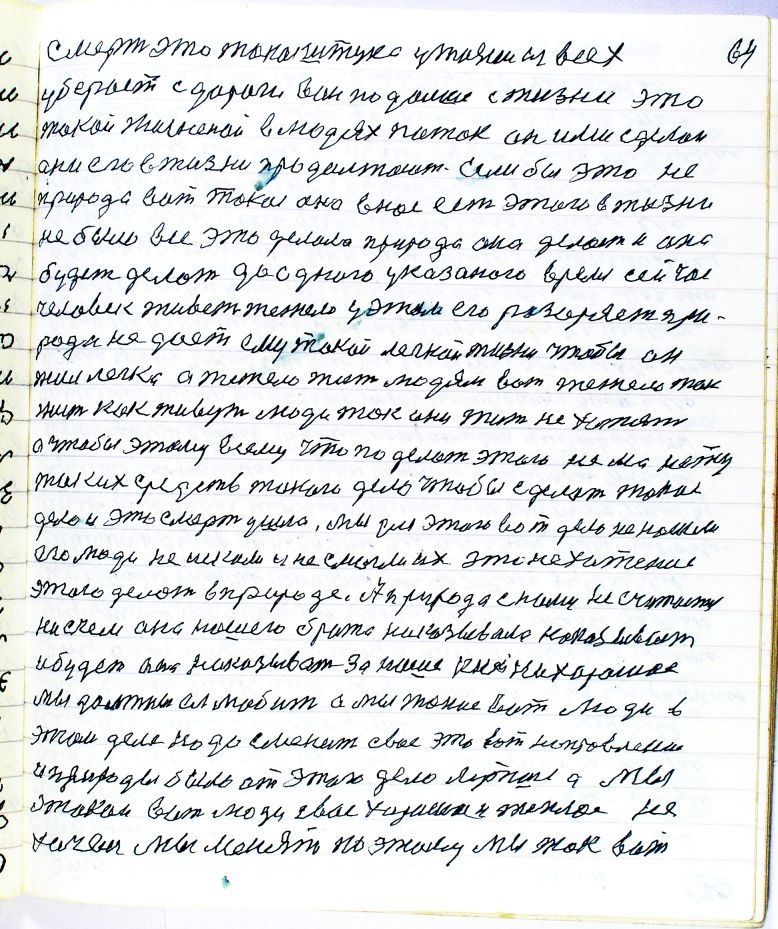 смерт это такая штука утаения всех 64
уберает с дороги вон подалше с жизни это
такой жизненой в людях поток он или сделан
они его в жизни продолжают. Если бы это не
природа вот такая она в нас ест этого в жизни
не было все это делала природа она делает и она
будет делат до одного указаного время сейчас
человек живет тежело у этом его разоряет при-
рода не дает ему такой легкой жизни чтобы он
жил легка а тежело жит людям вот тежело так
жит как живут люди так они жит не хотят
а чтобы этому всему что поделат этого нема нету
таких средств такого дело чтобы сделат такое
дело и это смерт ушла, мы для этого вот дело не нашли
его люди не искали и не смыслили их это не хатение
этого делат в природе. А природа снами не считается
ни счем она нашего брата наказывала наказывает
и будет она наказыват за наше не хорошое
мы должны ее любит а мы такие вот люди в
этом деле надо сменит свое это вот направление
и природы было от этого дело лутше а мы
этакои вот люди свое хорошое и теплое не
хочем мы менять поэтому мы так вот